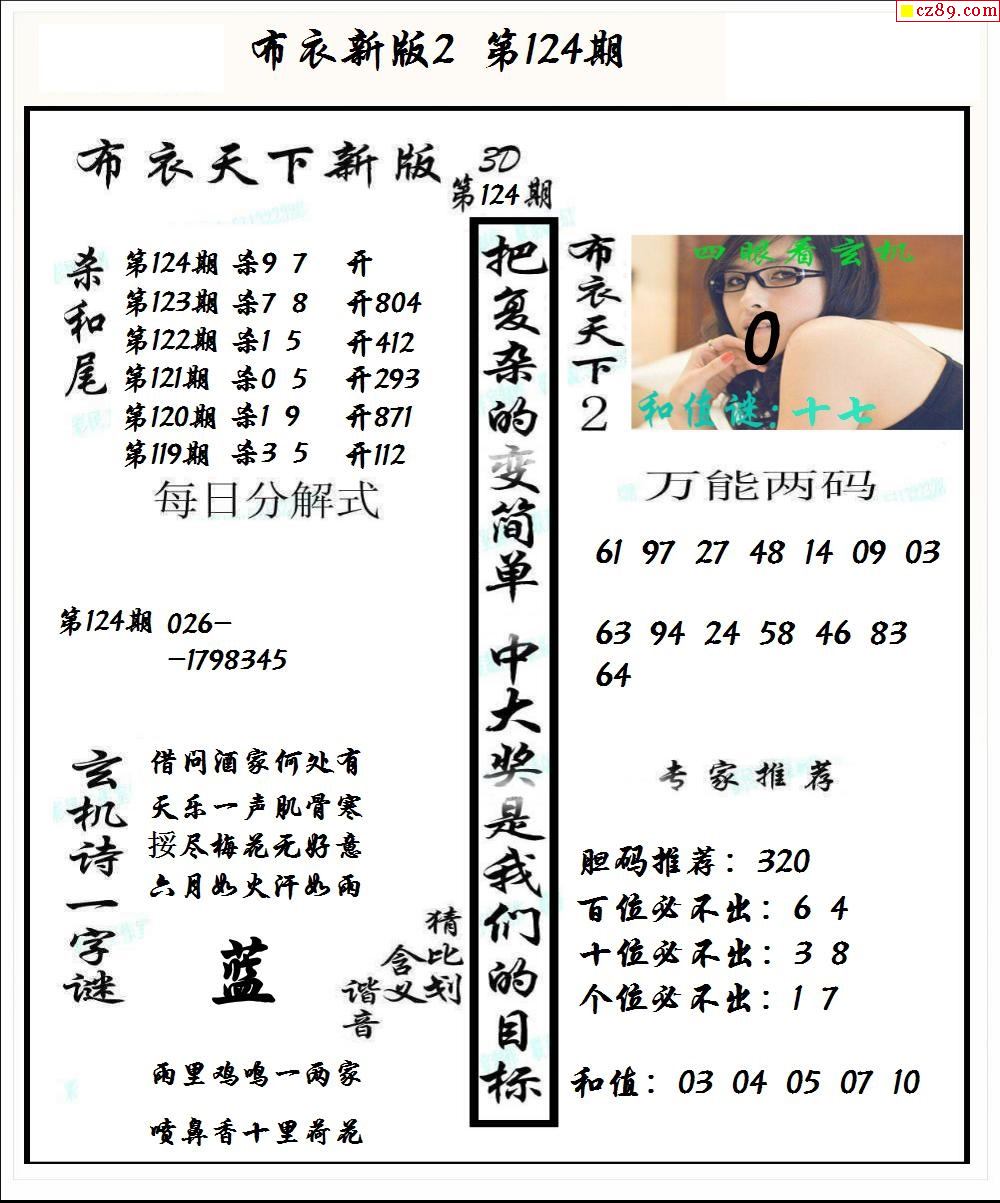 cz89.com
布衣新版2 第124期
布衣天下新版 3D
第124期
杀和尾
第124期 杀9 7 开
第123期 杀7 8 开804
第122期 杀1 5 开412
第121期 杀0 5 开293
第120期 杀1 9 开871
第119期 杀3 5 开112
每日分解式
第124期 026-
-1798345
玄机诗一字谜
借问酒家何处有
天乐一声肌骨寒
挼尽梅花无好意
六月如火汗如雨
蓝
猜比划
含义
谐音
雨里鸡鸣一两家
喷鼻香十里荷花
把复杂的变简单 中大奖是我们的目标
布衣天下2
四眼看玄机
0
和值谜:十七
万能两码
61 97 27 48 14 09 03
63 94 24 58 46 83
64
专家推荐
胆码推荐：320
百位必不出：6 4
十位必不出：3 8
个位必不出：1 7
和值：03 04 05 07 10